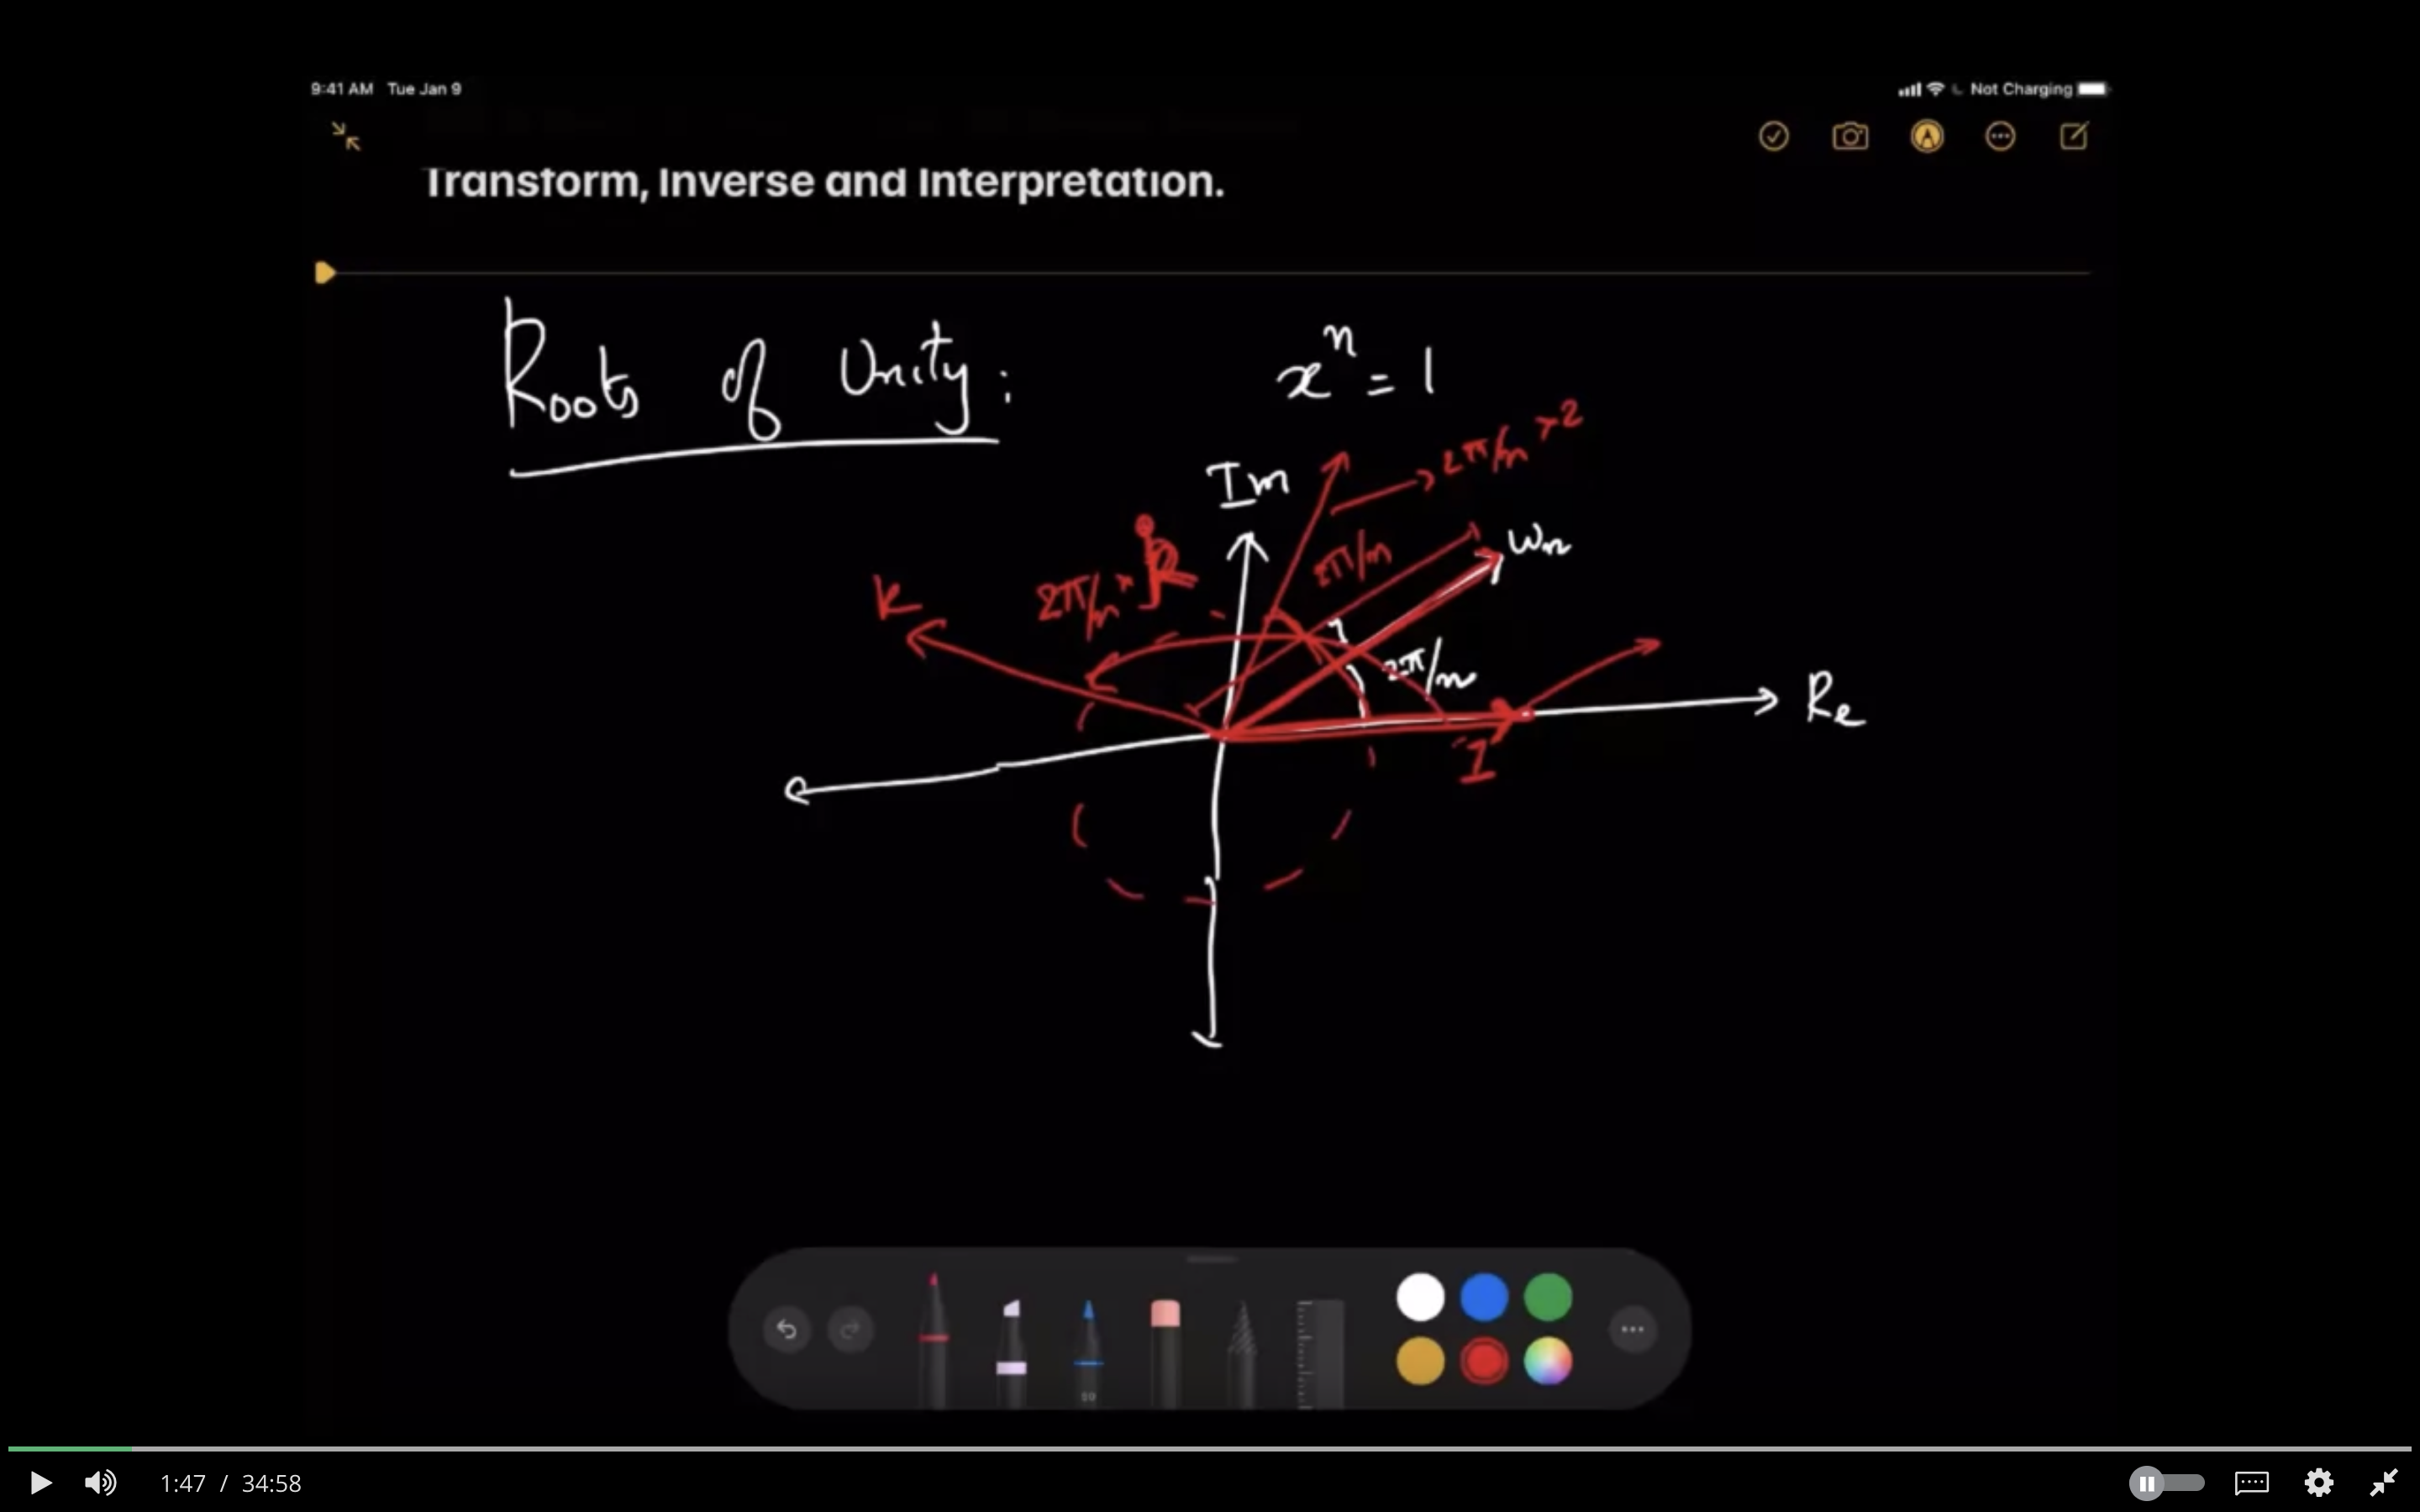 9:41 AM Tue Jan 9
Not Charging
Transform, Inverse and Interpretation.
Roots of Unity:
xⁿ = 1
2π/n × 2
Im
ωₙ
2π/n
2π/n × k
k
2π/n
Re
1
50
1:47 / 34:58